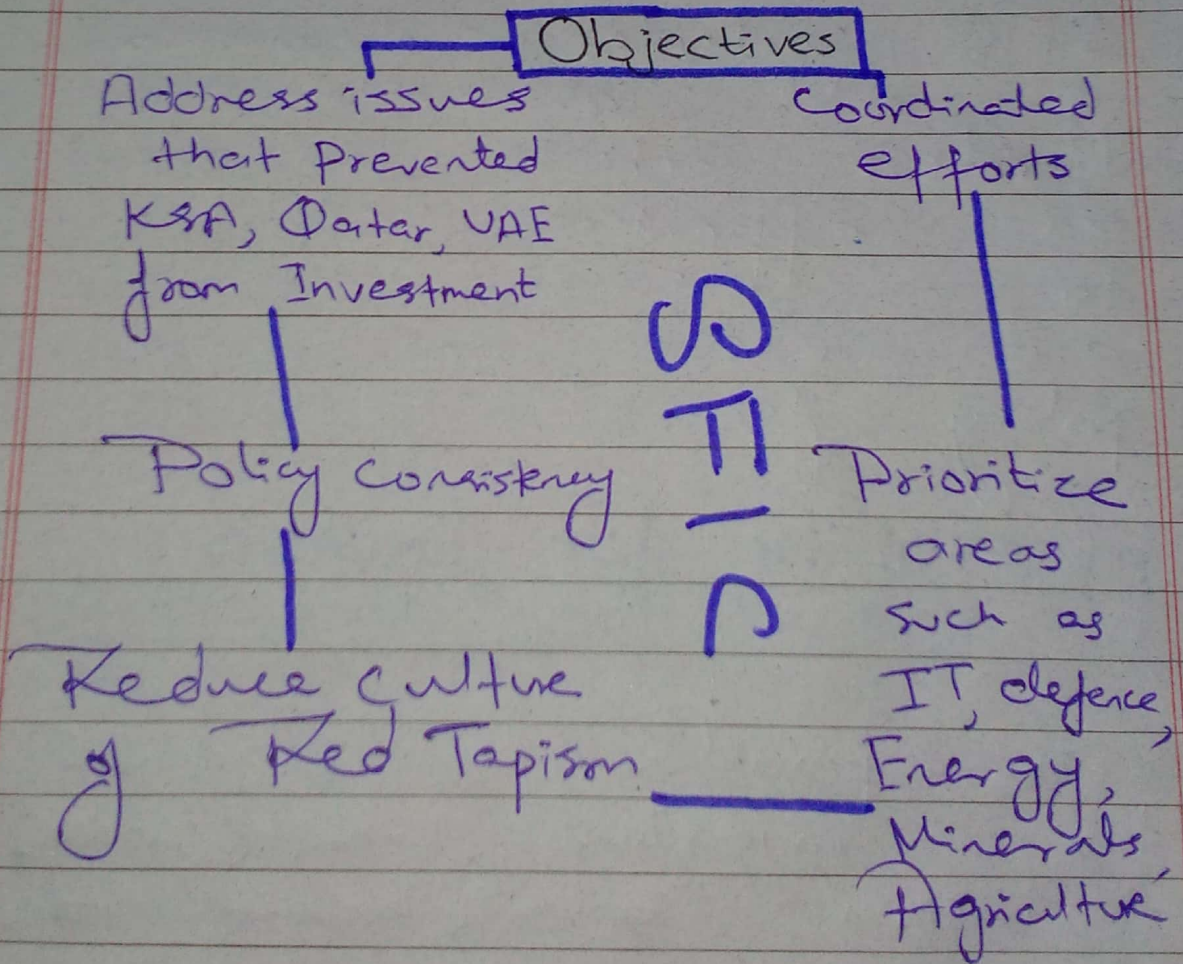 Objectives
Address issues
that Prevented
KSA, Qatar, UAE
from Investment
Policy Consistency
Reduce culture
of Red Tapism
SFIC
Coordinated
efforts
Prioritize
areas
such as
IT, defence,
Energy,
Minerals,
Agriculture